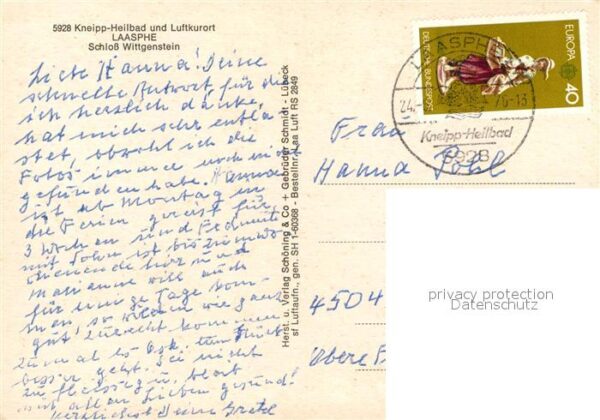 5928 Kneipp-Heilbad und Luftkurort
LAASPHE
Schloß Wittgenstein
Liebe Hanna! Deine
schnelle Antwort, für die
ich herzlich danke,
hat mich sehr entla-
stet, obwohl ich die
Fotos immer noch nicht
gefunden habe.
ist ab Montag in
die Ferien gereist für
3 Wochen und
mit Sohn ist bis zum Wo-
chenende hier und
Marianne will auch
für einige Tage kom-
men, so wir ganz
gut zurecht kommen
zumal es Gsk. zum Glück
besser geht. Sei nicht
zu fleissig u. bleib
mit allen Lieben gesund!
Herzlichst Deine Gretel
Herst. u. Verlag Schöning & Co + Gebrüder Schmidt - Lübeck
sf Luftaufn., gen. SH 1-60368 - Bestellnr. Laa Luft RS 2849
EUROPA
DEUTSCHE BUNDESPOST
40
LAASPHE
24.
76-13
Kneipp-Heilbad
5928
Frau
Hanna Pohl
4504
Obere
privacy protection
Datenschutz